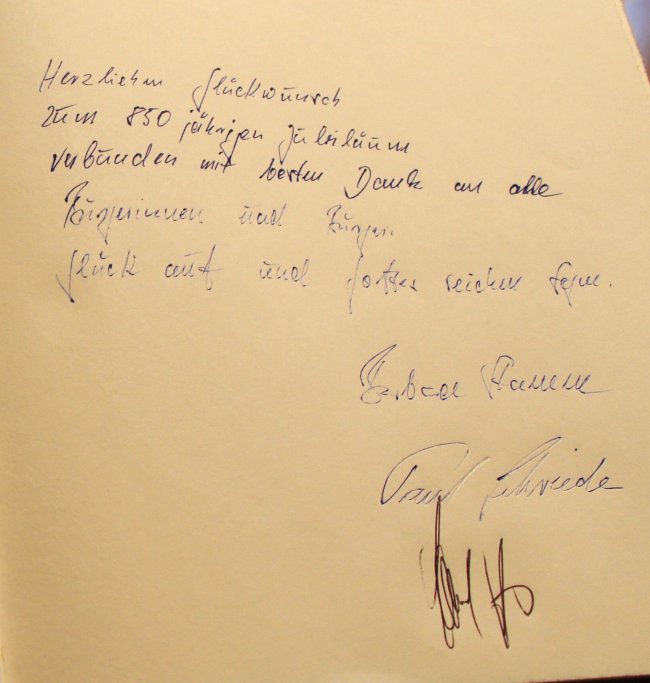 Herzlichen Glückwunsch
zum 850 jährigen Jubiläum
verbunden mit besten Dank an alle
Bürgerinnen und Bürger.
Glück auf und Gottes reichen Segen.
Barbara Stamm
Paul